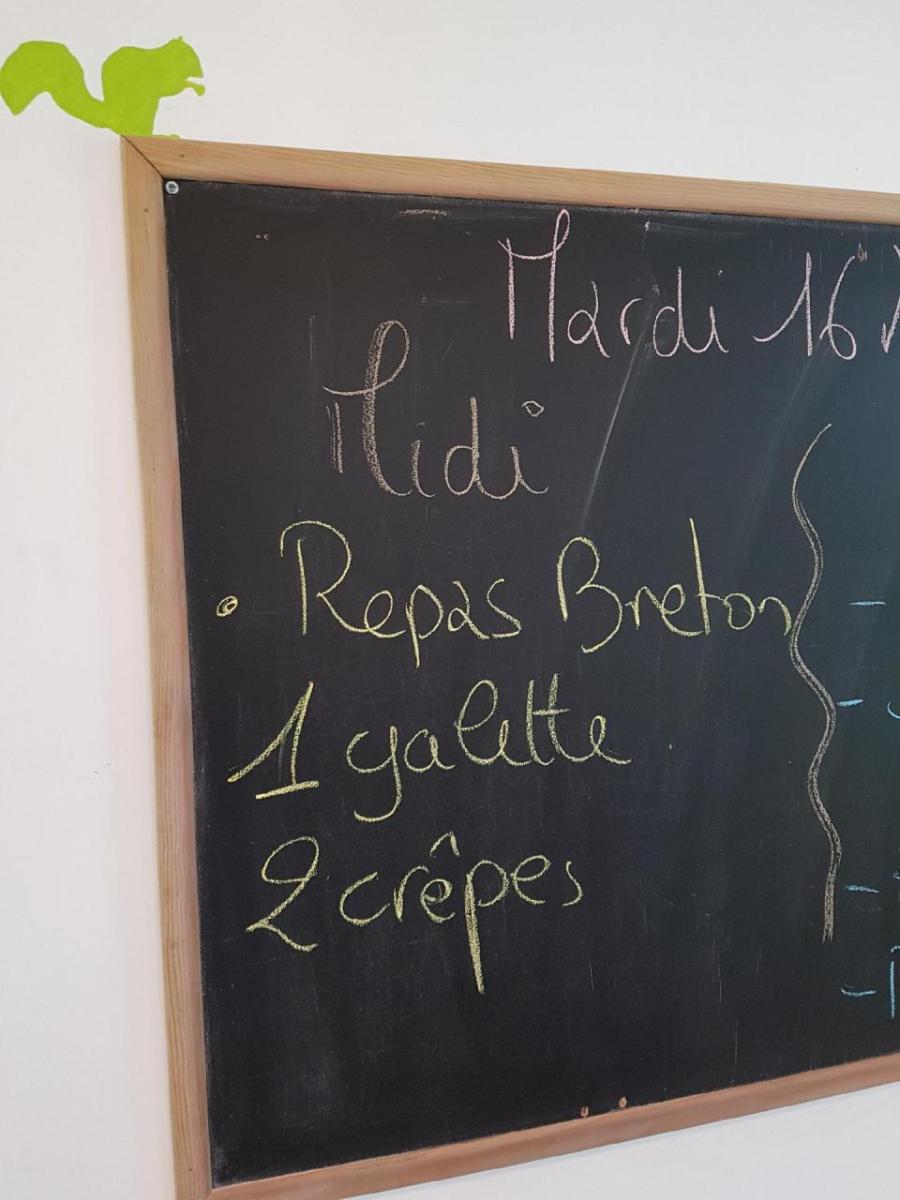 Mardi 16
Midi
• Repas Breton
1 galette
2 crêpes